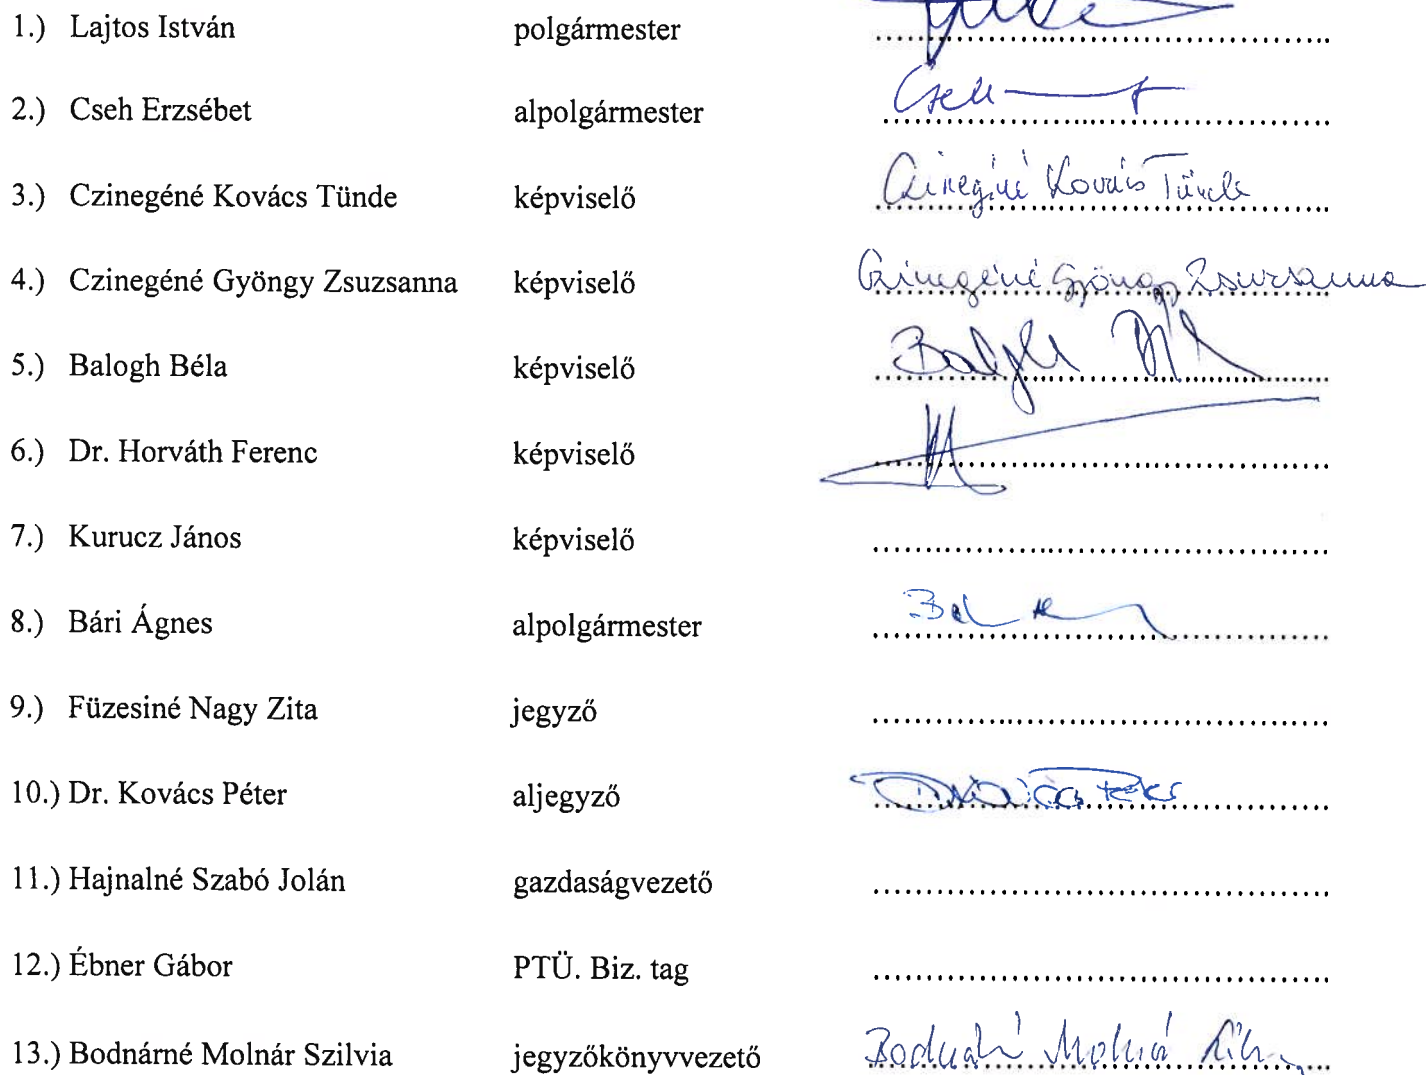 1.) Lajtos István polgármester
2.) Cseh Erzsébet alpolgármester Cseh
3.) Czinegéné Kovács Tünde képviselő Czinegéné Kovács Tünde
4.) Czinegéné Gyöngy Zsuzsanna képviselő Czinegéné Gyöngy Zsuzsanna
5.) Balogh Béla képviselő Balogh Béla
6.) Dr. Horváth Ferenc képviselő
7.) Kurucz János képviselő
8.) Bári Ágnes alpolgármester
9.) Füzesiné Nagy Zita jegyző
10.) Dr. Kovács Péter aljegyző
11.) Hajnalné Szabó Jolán gazdaságvezető
12.) Ébner Gábor PTÜ. Biz. tag
13.) Bodnárné Molnár Szilvia jegyzőkönyvvezető Bodnárné Molnár Szilvia